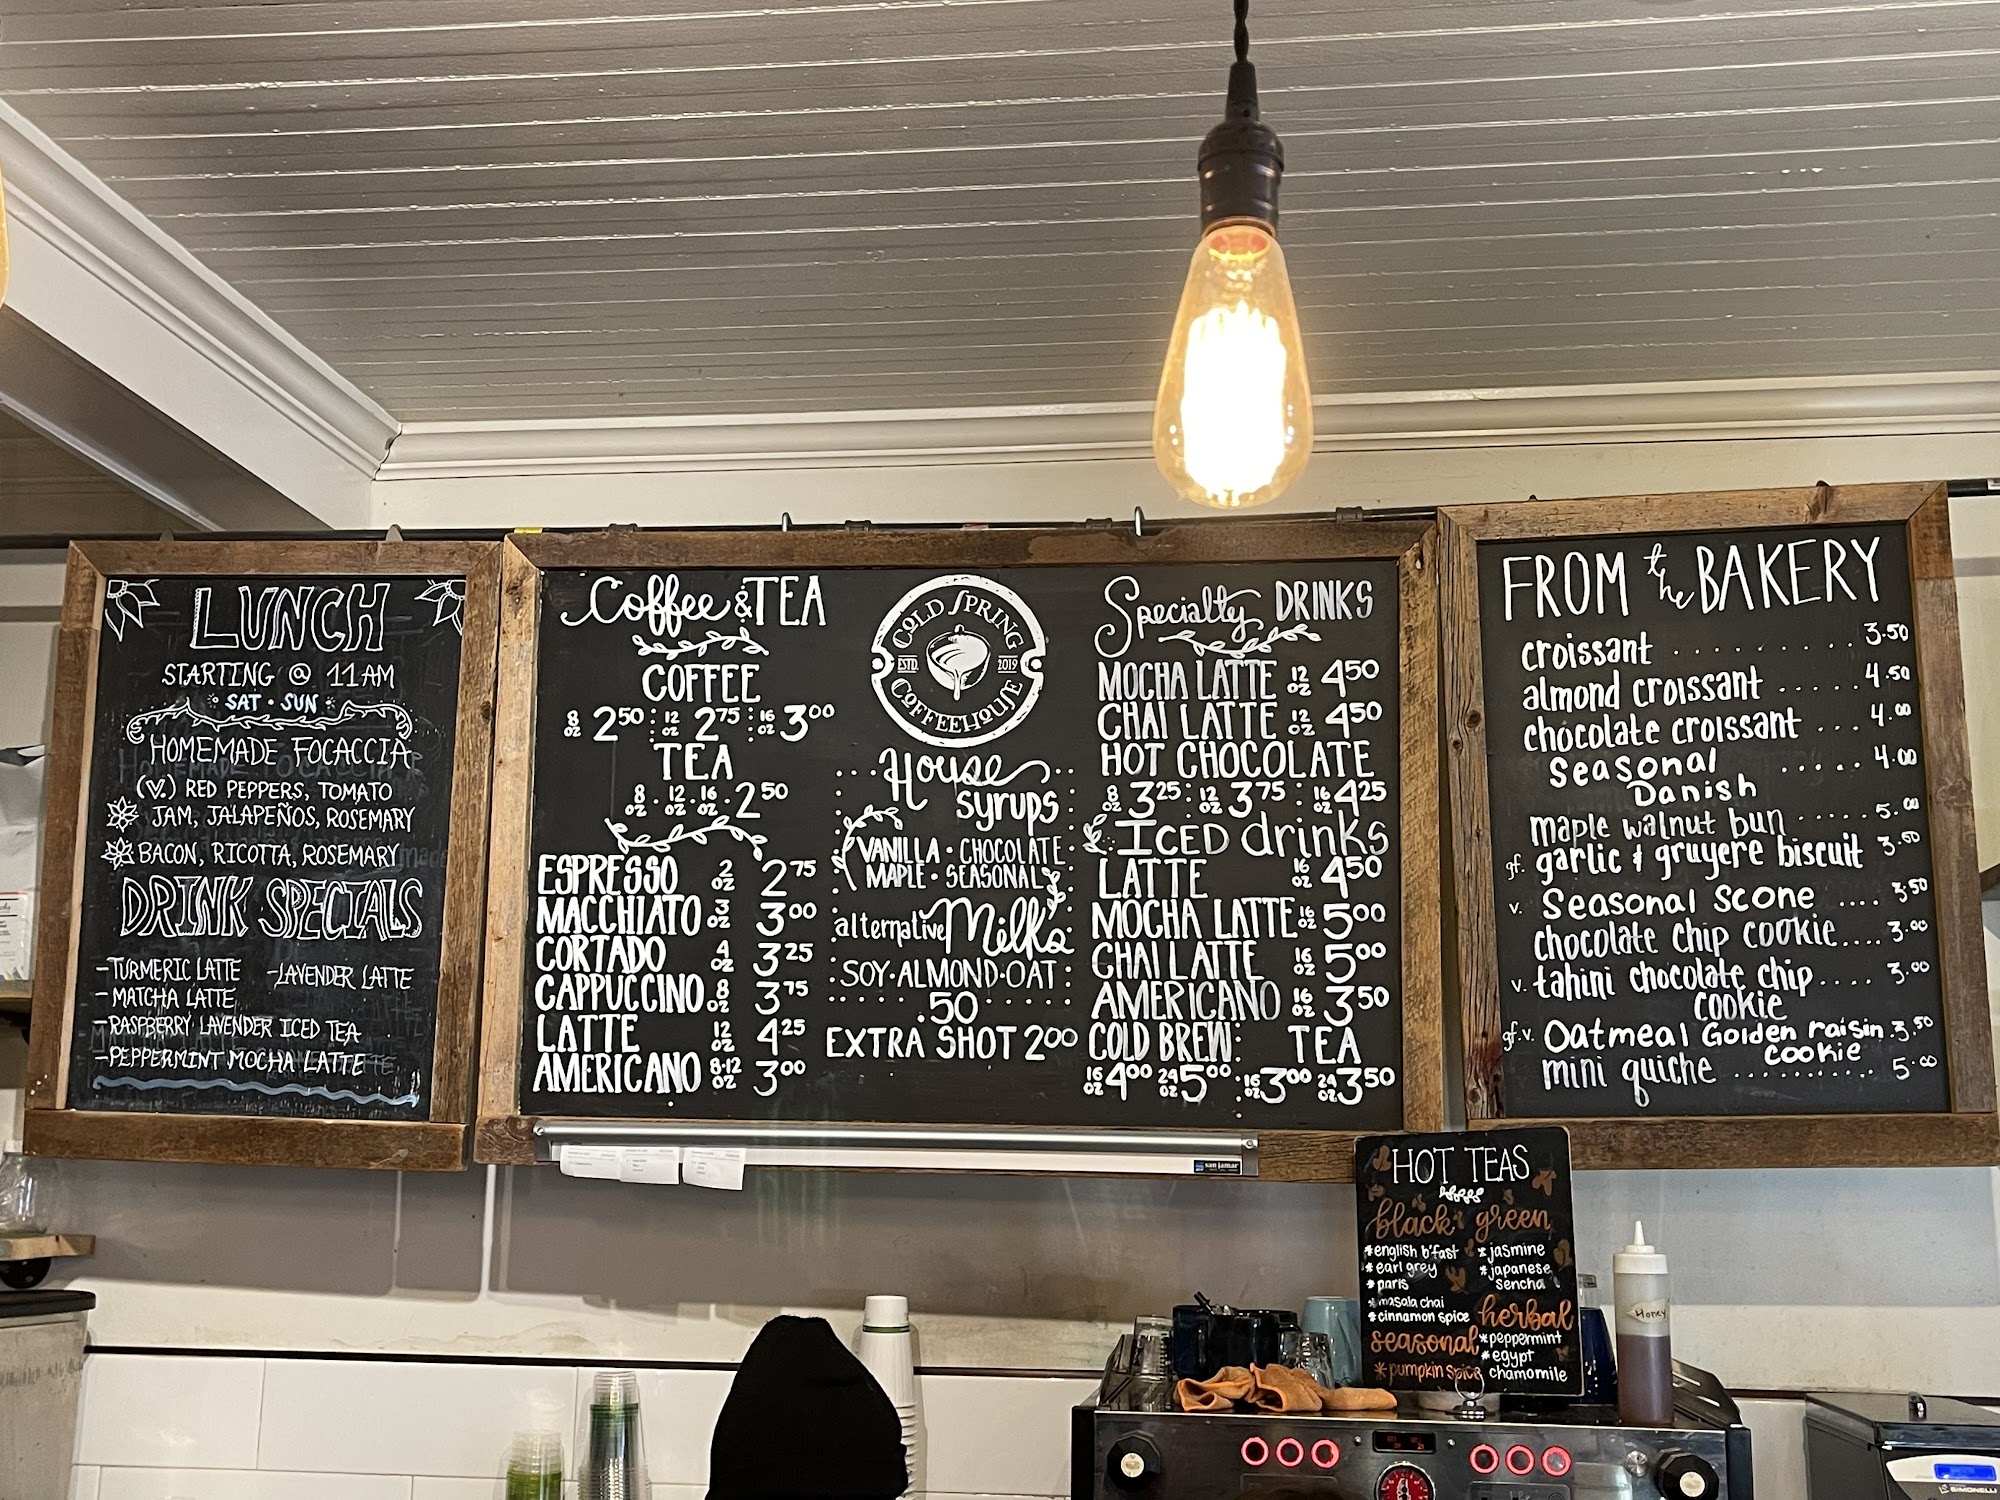 LUNCH
STARTING @ 11AM
SAT · SUN
HOMEMADE FOCACCIA
(V.) RED PEPPERS, TOMATO
JAM, JALAPEÑOS, ROSEMARY
BACON, RICOTTA, ROSEMARY
DRINK SPECIALS
-TURMERIC LATTE -LAVENDER LATTE
-MATCHA LATTE
-RASPBERRY LAVENDER ICED TEA
-PEPPERMINT MOCHA LATTE
Coffee & TEA
COFFEE
8 oz 2.50 : 12 oz 2.75 : 16 oz 3.00
TEA
8 oz · 12 oz · 16 oz · 2.50
ESPRESSO 2 oz 2.75
MACCHIATO 3 oz 3.00
CORTADO 4 oz 3.25
CAPPUCCINO 8 oz 3.75
LATTE 12 oz 4.25
AMERICANO 8·12 oz 3.00
COLD SPRING
ESTD. 2019
COFFEEHOUSE
House
syrups
VANILLA · CHOCOLATE
MAPLE · SEASONAL
alternative Milks
SOY · ALMOND · OAT
.50
EXTRA SHOT 2.00
Specialty DRINKS
MOCHA LATTE 12 oz 4.50
CHAI LATTE 12 oz 4.50
HOT CHOCOLATE
8 oz 3.25 : 12 oz 3.75 : 16 oz 4.25
ICED drinks
LATTE 16 oz 4.50
MOCHA LATTE 16 oz 5.00
CHAI LATTE 16 oz 5.00
AMERICANO 16 oz 3.50
COLD BREW: TEA
16 oz 4.00 24 oz 5.00 : 16 oz 3.00 24 oz 3.50
FROM the BAKERY
croissant ......... 3.50
almond croissant ..... 4.50
chocolate croissant ... 4.00
Seasonal Danish ..... 4.00
maple walnut bun ..... 5.00
gf. garlic & gruyere biscuit 3.50
v. Seasonal Scone .... 3.50
chocolate chip cookie.... 3.00
v. tahini chocolate chip cookie .... 3.00
gf.v. Oatmeal Golden raisin cookie 3.50
mini quiche .......... 5.00
san jamar
HOT TEAS
black
*english b'fast
*earl grey
*paris
*masala chai
*cinnamon spice
seasonal
*pumpkin spice
green
*jasmine
*japanese
sencha
herbal
*peppermint
*egypt
chamomile
Honey
SIMONELLI